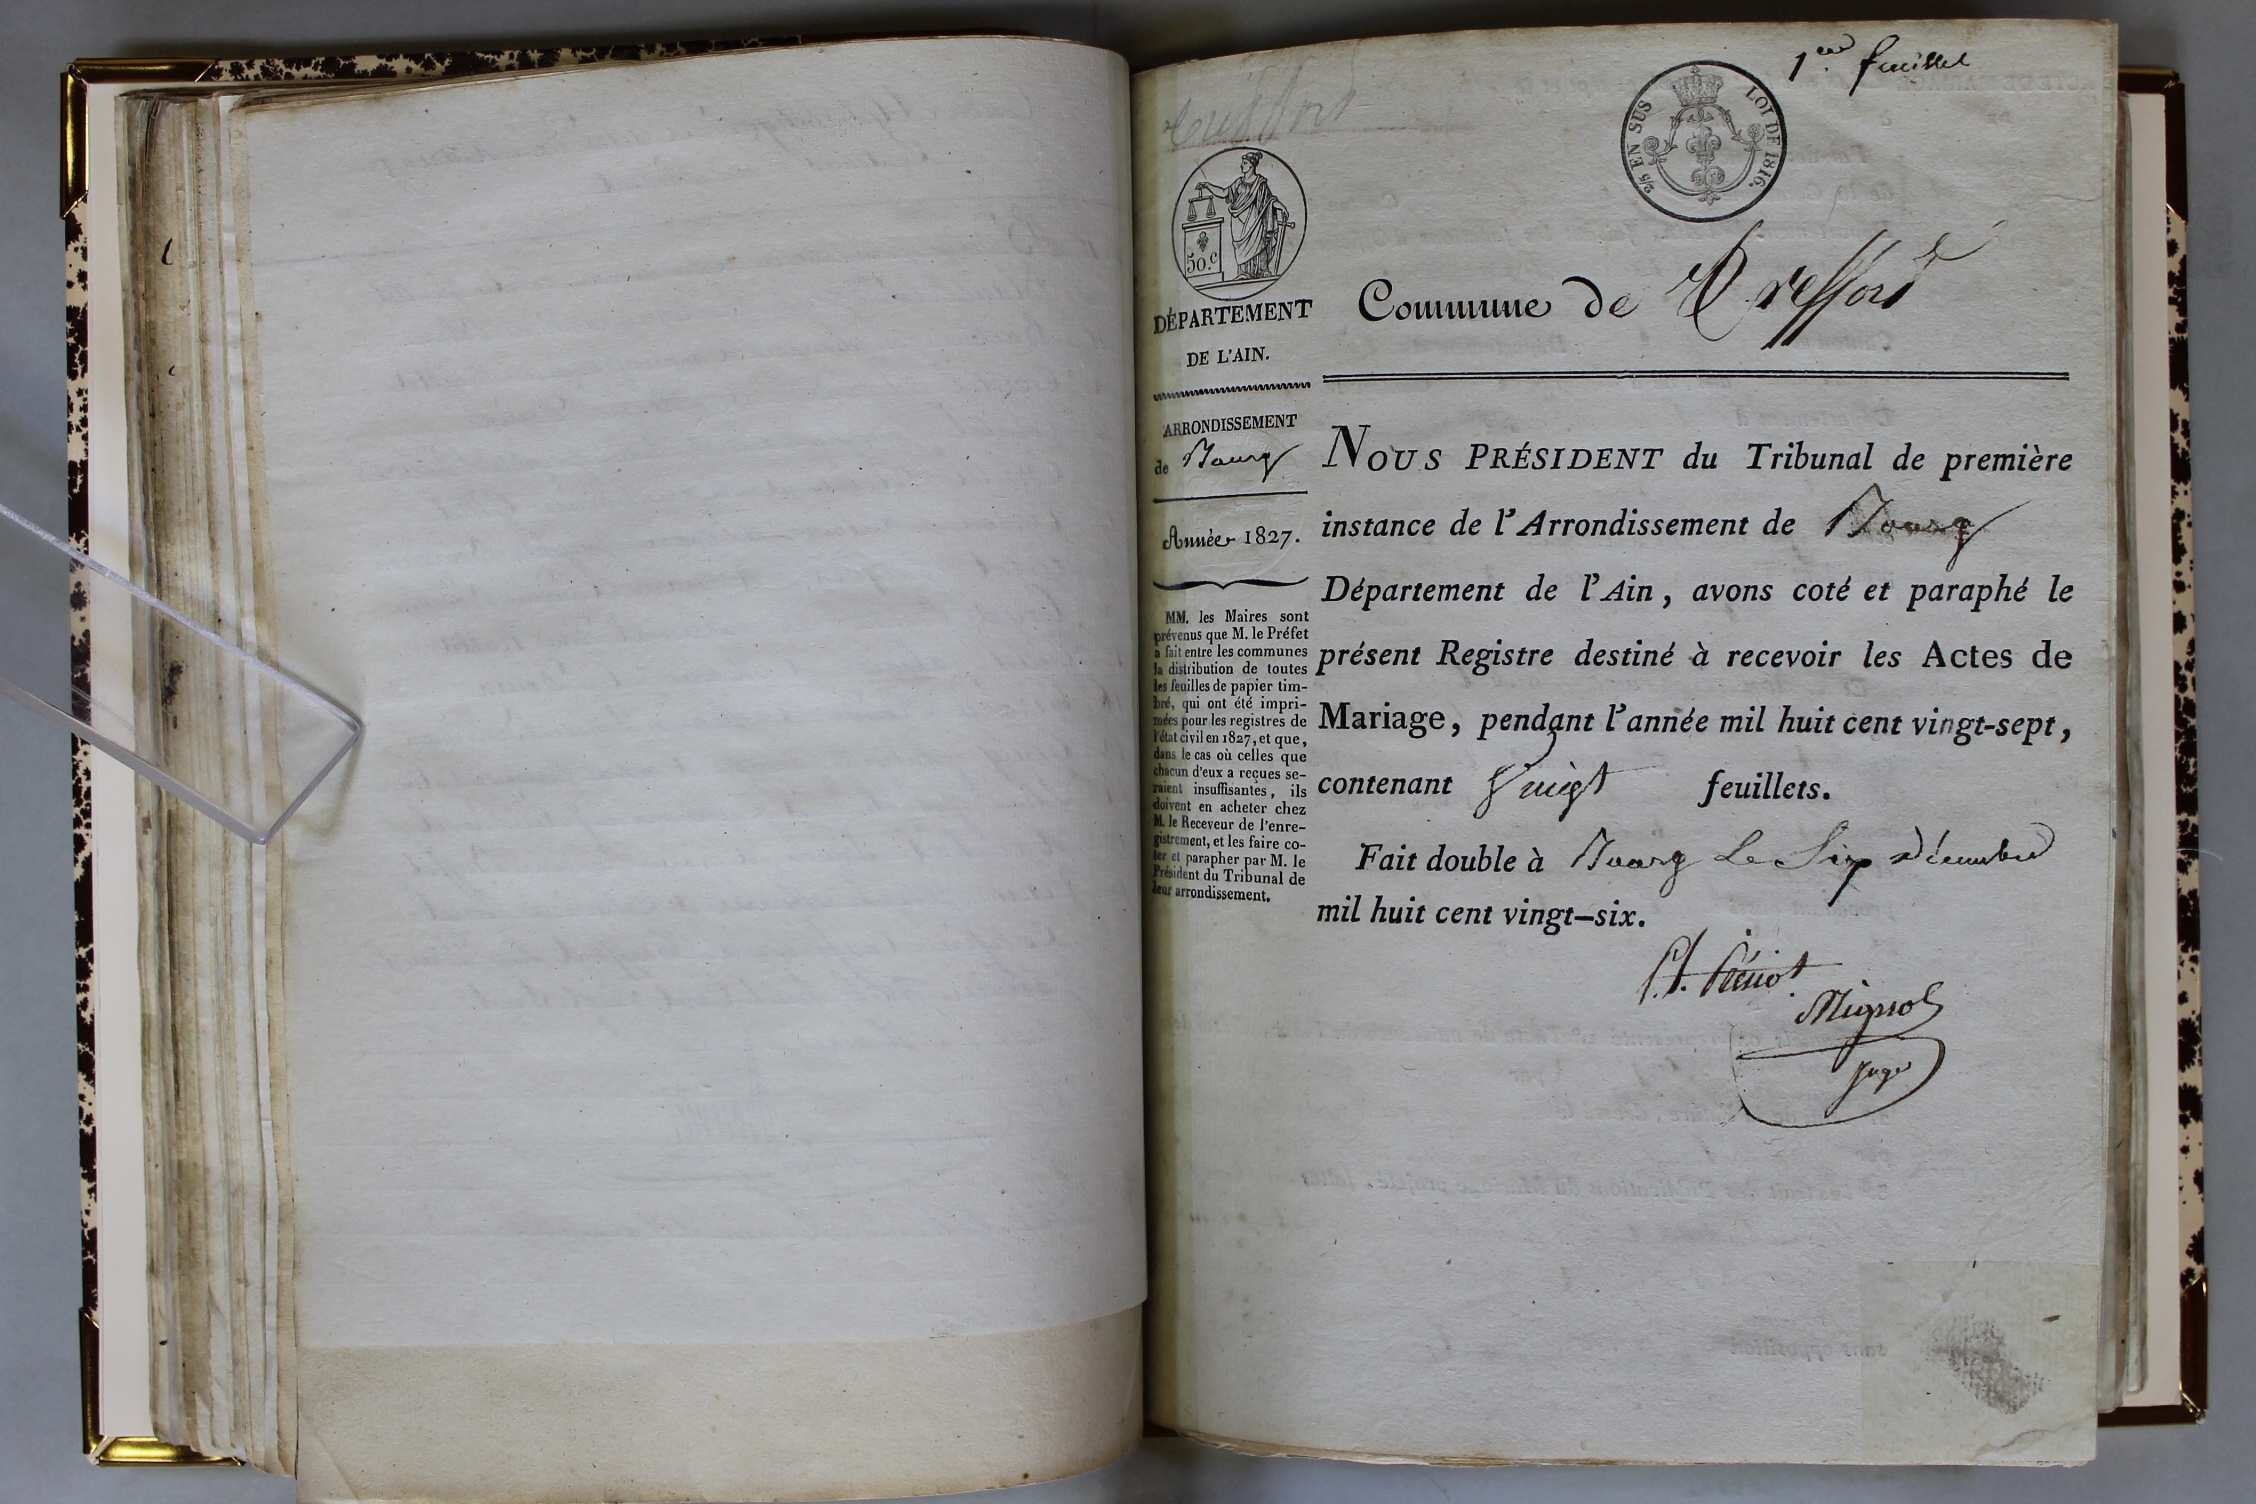 1er feuillet
Treffort
2/5 EN SUS LOI DE 1816.
50.c
DÉPARTEMENT
DE L'AIN.
ARRONDISSEMENT
de Bourg
Année 1827.
MM. les Maires sont
prévenus que M. le Préfet
a fait entre les communes
la distribution de toutes
les feuilles de papier tim-
bré, qui ont été impri-
mées pour les registres de
l'état civil en 1827, et que,
dans le cas où celles que
chacun d'eux a reçues se-
raient insuffisantes, ils
doivent en acheter chez
M. le Receveur de l'enre-
gistrement, et les faire co-
ter et parapher par M. le
Président du Tribunal de
leur arrondissement.
Commune de Treffort
NOUS PRÉSIDENT du Tribunal de première
instance de l'Arrondissement de Bourg
Département de l'Ain, avons coté et paraphé le
présent Registre destiné à recevoir les Actes de
Mariage, pendant l'année mil huit cent vingt-sept,
contenant Vingt feuillets.
Fait double à Bourg Le Six décembre
mil huit cent vingt-six.
Mignot
juge